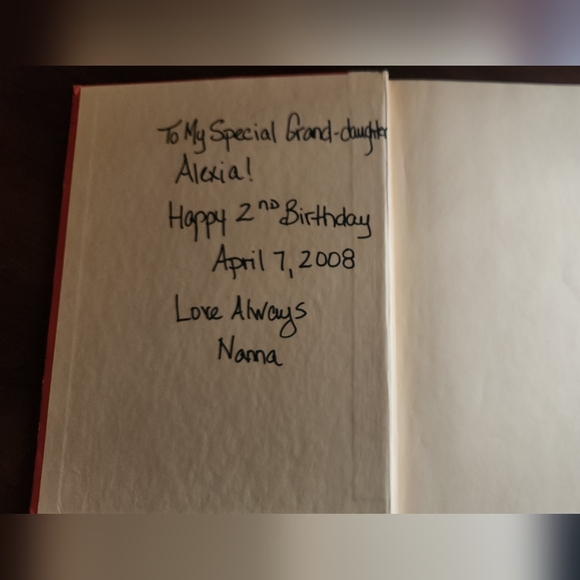 To My Special Grand-daughter
Alexia!
Happy 2ND Birthday
April 7, 2008
Love Always
Nanna